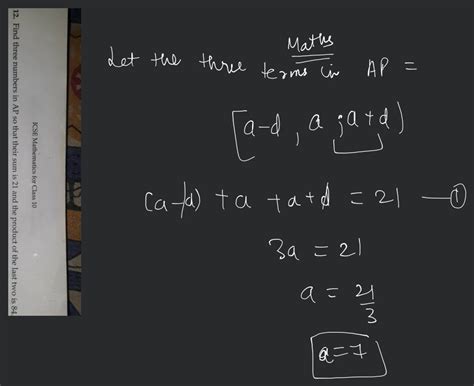 ICSE Mathematics for Class 10
12. Find three numbers in AP so that their sum is 21 and the product of the last two is 84.
Maths
Let the three terms in AP =
[a-d, a, a+d)
(a-d) + a + a+d = 21 —①
3a = 21
a = 21/3
a=7